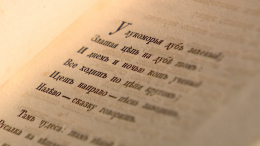 У лукоморья дубъ зеленый;
Златая цѣпь на дубѣ томъ:
И днемъ и ночью котъ ученый
Все ходитъ по цѣпи кругомъ;
Идетъ направо — пѣснь заводитъ,
Налѣво — сказку говоритъ.
Тамъ чудеса: тамъ
Русалка на